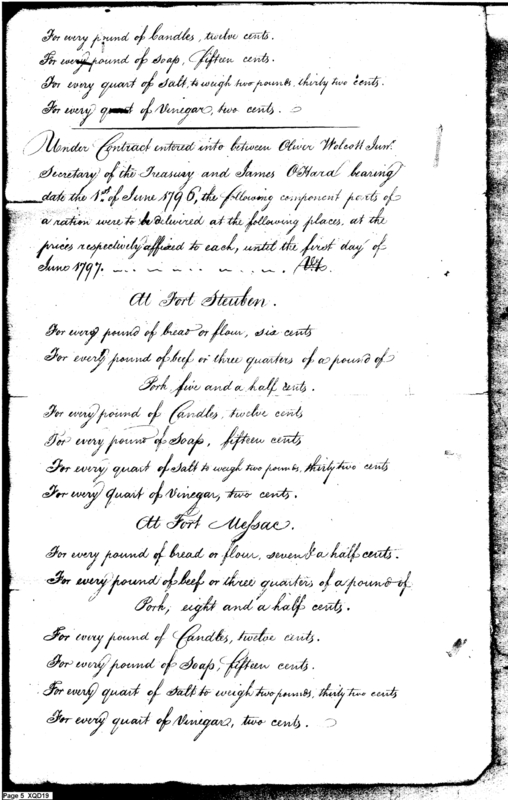 For every pound of Candles, twelve cents.
For every pound of Soap, fifteen cents.
For every quart of Salt, to weigh two pounds, thirty two cents.
For every quart of Vinegar, two cents.
Under Contract intered into between Oliver Wolcott Junr.
Secretary of the Treasury and James OHara bearing
date the 1st of June 1796, the following component parts of
a ration were to be delivered at the following places, at the
prices respectively affixed to each, until the first day of
June 1797.
At Fort Steuben.
For every pound of bread or flour, six cents
For every pound of beef or three quarters of a pound of
Pork five and a half cents.
For every pound of Candles, twelve cents
For every pound of Soap, fifteen cents
For every quart of Salt to weigh two pounds, thirty two cents
For every quart of Vinegar, two cents.
At Fort Messac.
For every pound of bread or flour, seven & a half cents.
For every pound of beef or three quarters of a pound of
Pork, eight and a half cents.
For every pound of Candles, twelve cents.
For every pound of Soap, fifteen cents.
For every quart of Salt to weigh two pounds, thirty two cents
For every quart of Vinegar, two cents.
Page 5 XQD19